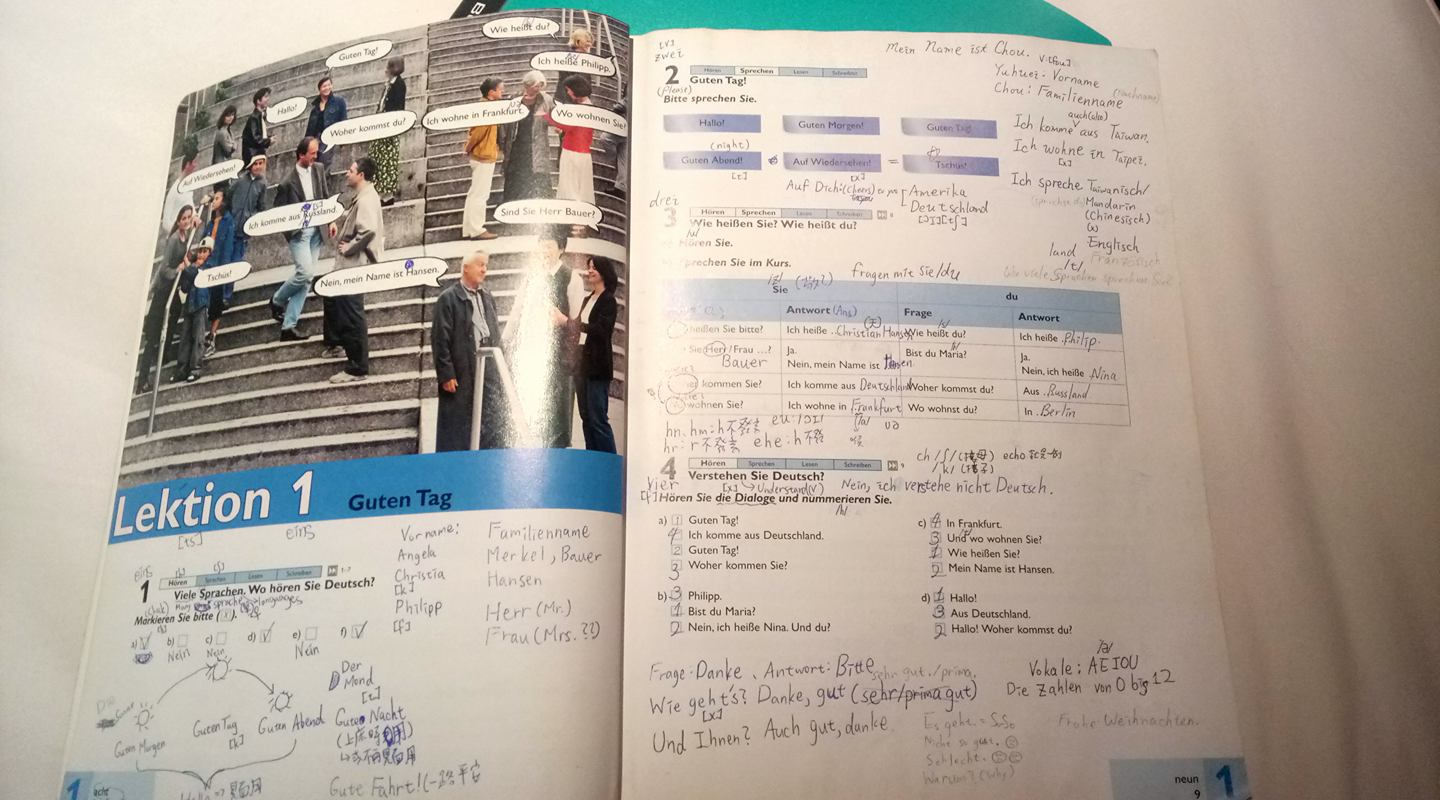 Wie heißt du?
Guten Tag!
Ich heiße Philipp.
Hallo!
Woher kommst du?
Ich wohne in Frankfurt.
Wo wohnen Sie?
Auf Wiedersehen!
Ich komme aus Russland.
Sind Sie Herr Bauer?
Tschüs!
Nein, mein Name ist Hansen.
Lektion 1 Guten Tag
[ts] eins
Vorname: Familienname
Angela Merkel, Bauer
Christia Hansen
[k]
Philipp Herr (Mr.)
[f] Frau (Mrs. ??)
eins
1 Hören Sprechen Lesen Schreiben 1-7
Viele Sprachen. Wo hören Sie Deutsch?
Markieren Sie bitte
a) b) c) d) e) f)
Nein Nein
Der
Mond
[t]
Guten Morgen
Guten Tag
[k]
Guten Abend
Gute Nacht
Gute Fahrt! (一路平安
1 acht
[v]
zwei
Mein Name ist Chou.
Yuhuei - Vorname
Chou: Familienname (Nachname)
auch (also)
Ich komme aus Taiwan.
Ich wohne in Taipei.
[x]
Ich spreche Taiwanisch/
Mandarin
(Chinesisch)
Englisch
Französisch
2 Hören Sprechen Lesen Schreiben
Guten Tag!
(Please)
Bitte sprechen Sie.
Hallo! Guten Morgen! Guten Tag!
(night)
Guten Abend! Auf Wiedersehen! = Tschüs!
[t]
Auf Dich: (Cheers)
Amerika
Deutschland
drei
3 Hören Sprechen Lesen Schreiben 8
Wie heißen Sie? Wie heißt du?
Hören Sie.
Sprechen Sie im Kurs.
fragen mit Sie/du
land
/t/
Sie du
Antwort (Ans) Frage Antwort
heißen Sie bitte? Ich heiße Christian Hansen Wie heißt du? Ich heiße Philip.
Sie Herr/Frau ...? Ja. Bist du Maria? Ja.
Bauer Nein, mein Name ist Hansen. Nein, ich heiße Nina
kommen Sie? Ich komme aus Deutschland Woher kommst du? Aus Russland
wohnen Sie? Ich wohne in Frankfurt Wo wohnst du? In Berlin
hn, hm: h不發音
hr: r不發音 ehe: h不發
vier
4 Hören Sprechen Lesen Schreiben 9
Verstehen Sie Deutsch?
[x] → Understand(V) Nein, ich verstehe nicht Deutsch.
[f] Hören Sie die Dialoge und nummerieren Sie.
a) 1 Guten Tag!
4 Ich komme aus Deutschland.
2 Guten Tag!
3 Woher kommen Sie?
b) 3 Philipp.
1 Bist du Maria?
2 Nein, ich heiße Nina. Und du?
c) 4 In Frankfurt.
3 Und wo wohnen Sie?
1 Wie heißen Sie?
2 Mein Name ist Hansen.
d) 1 Hallo!
3 Aus Deutschland.
2 Hallo! Woher kommst du?
Frage: Danke、Antwort: Bitte
sehr gut./prima.
Wie geht's? Danke, gut (sehr/prima gut)
[x]
Und Ihnen? Auch gut, danke.
Vokale: AEIOU
Die Zahlen von 0 bis 12
Es geht. = SoSo
Nicht so gut.
Schlecht.
Warum? (why)
Frohe Weihnachten.
neun
9 1